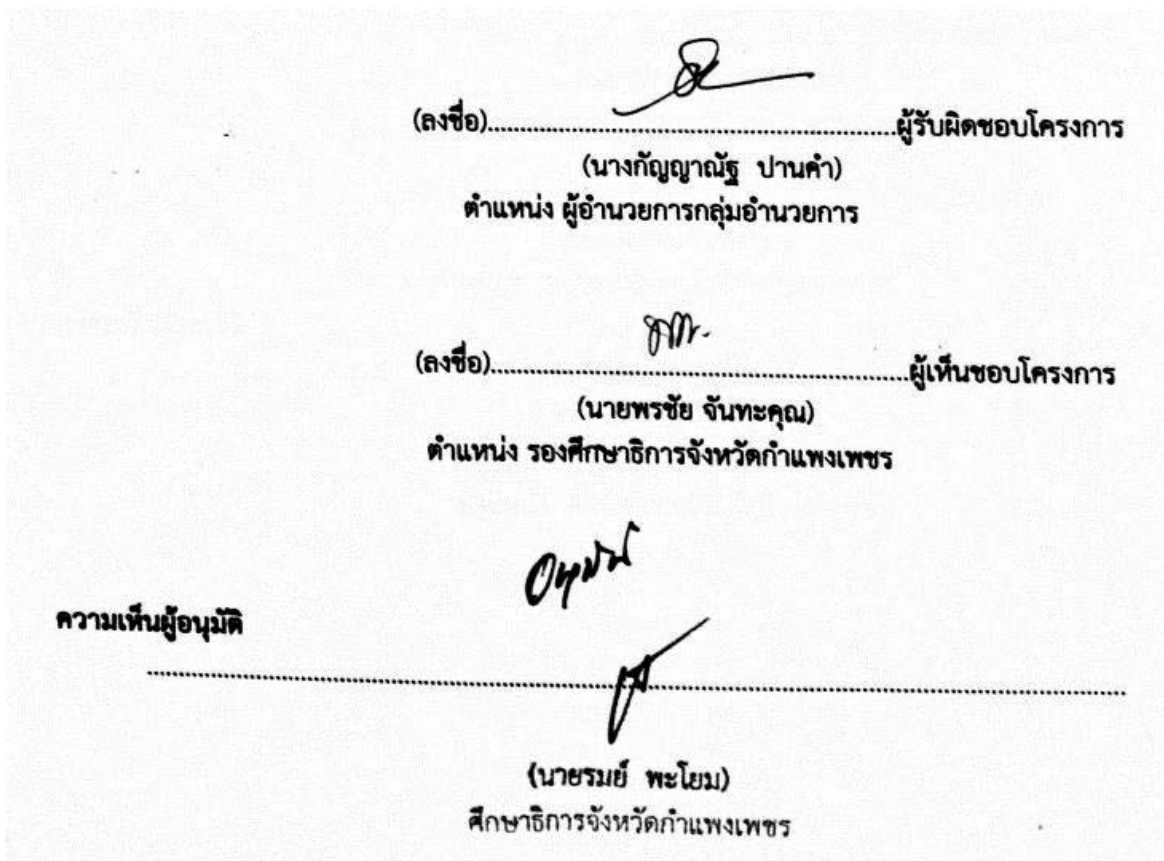 (ลงชื่อ)............................................................ผู้รับผิดชอบโครงการ
(นางกัญญาณัฐ ปานคำ)
ตำแหน่ง ผู้อำนวยการกลุ่มอำนวยการ
(ลงชื่อ)............................................................ผู้เห็นชอบโครงการ
(นายพรชัย จันทะคุณ)
ตำแหน่ง รองศึกษาธิการจังหวัดกำแพงเพชร
อนุมัติ
ความเห็นผู้อนุมัติ
(นายรมย์ พะโยม)
ศึกษาธิการจังหวัดกำแพงเพชร